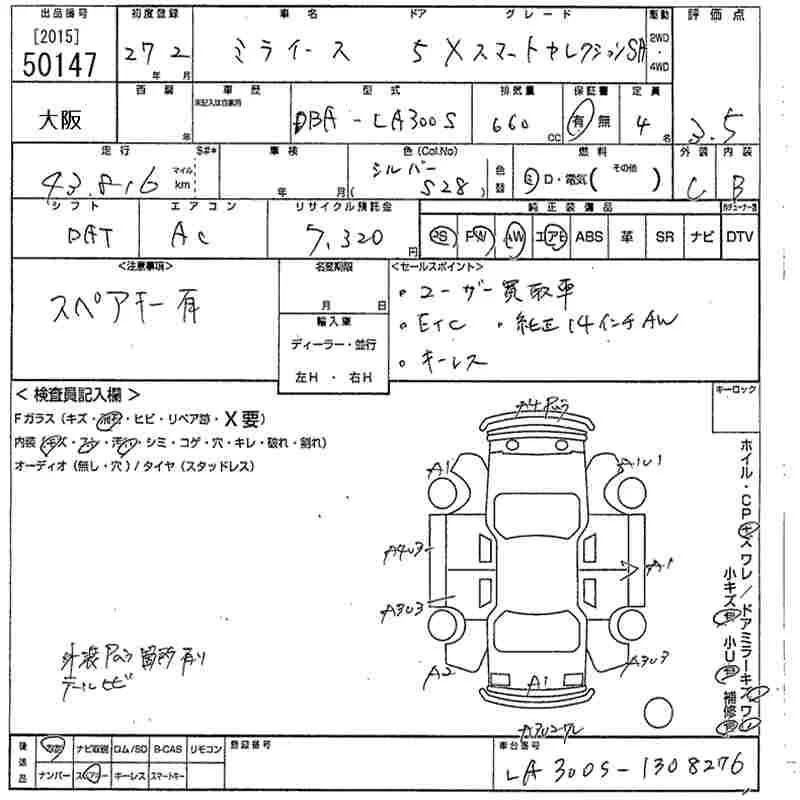 出品番号 初度登録 車名 ドア グレード 駆動 評価点
[2015]
50147 27 2 ミライース 5 Xスマートセレクション SA 2WD・4WD
年 月
西暦 車歴 型式 排気量 保証書 定員
未記入は自家用
大阪 DBA-LA300S 660 有 無 4 3.5
年 cc 名
走行 S#* 車検 色(Col.No) 燃料 外装 内装
43,816 マイル km 年 月 シルバー S28 色替 D・電気( その他 ) C B
シフト エアコン リサイクル預託金 純正装備品
DAT AC 7,320 円 PS PW AW エアB ABS 革 SR ナビ DTV
<注意事項> 名変期限 <セールスポイント>
スペアキー有 月 日 ・ユーザー買取車
輸入車 ・ETC ・純正14インチAW
ディーラー・並行 ・キーレス
左H ・ 右H
<検査員記入欄> キーロック
Fガラス(キズ・飛石・ヒビ・リペア跡・X要)
内装(キズ・スレ・汚れ・シミ・コゲ・穴・キレ・破れ・割れ)
オーディオ(無し・穴)/タイヤ(スタッドレス)
A1 A1U1
A4U3 A1
A3U3
A2 A3U3
A1
ホイル・CPキズワレ/ドアミラーキズワレ
小キズ有 小U有 補修有
テールヒビ
後送品 取説 ナビ取説 ロム/SD B-CAS リモコン 登録番号 車台番号
ナンバー スペアキー キーレス スマートキー LA300S-1308276